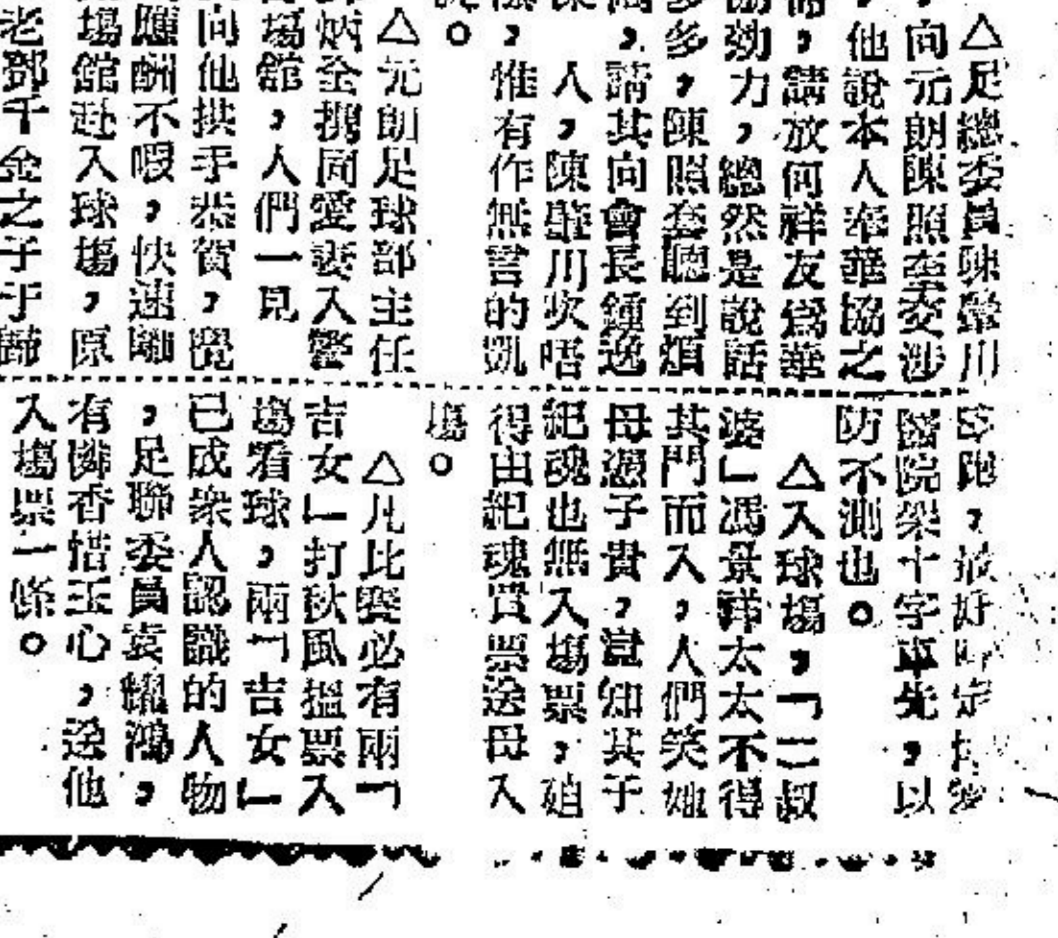 △足總委員陳肇川
，向元朗陳照奎交涉
，他說本人奉華協之
命，請放何祥友爲華
協効力，總然是說話
多多，陳照奎聽到煩
，請其向會長鍾逸
人，陳肇川吹唔
，惟有作無言的凱
。
△元朗足球部主任
炳全携同愛妻入警
塲館，人們一見
向他拱手恭賀，覺
應酬不暇，快速離
塲館赴入球塲，原
老鄧千金之子于歸
跑，最好
醫院架十字車先，以
防不測也。
△入球塲，「二叔
婆」馮景祥太太不得
其門而入，人們笑她
母憑子貴，豈知其子
紀魂也無入塲票，
得由紀魂買票送母入
塲。
△凡比賽必有兩「
吉女」打秋風搵票入
塲看球，兩「吉女」
已成衆人認識的人物
，足聯委員袁耀鴻，
有憐香惜玉心，送他
入塲票一條。